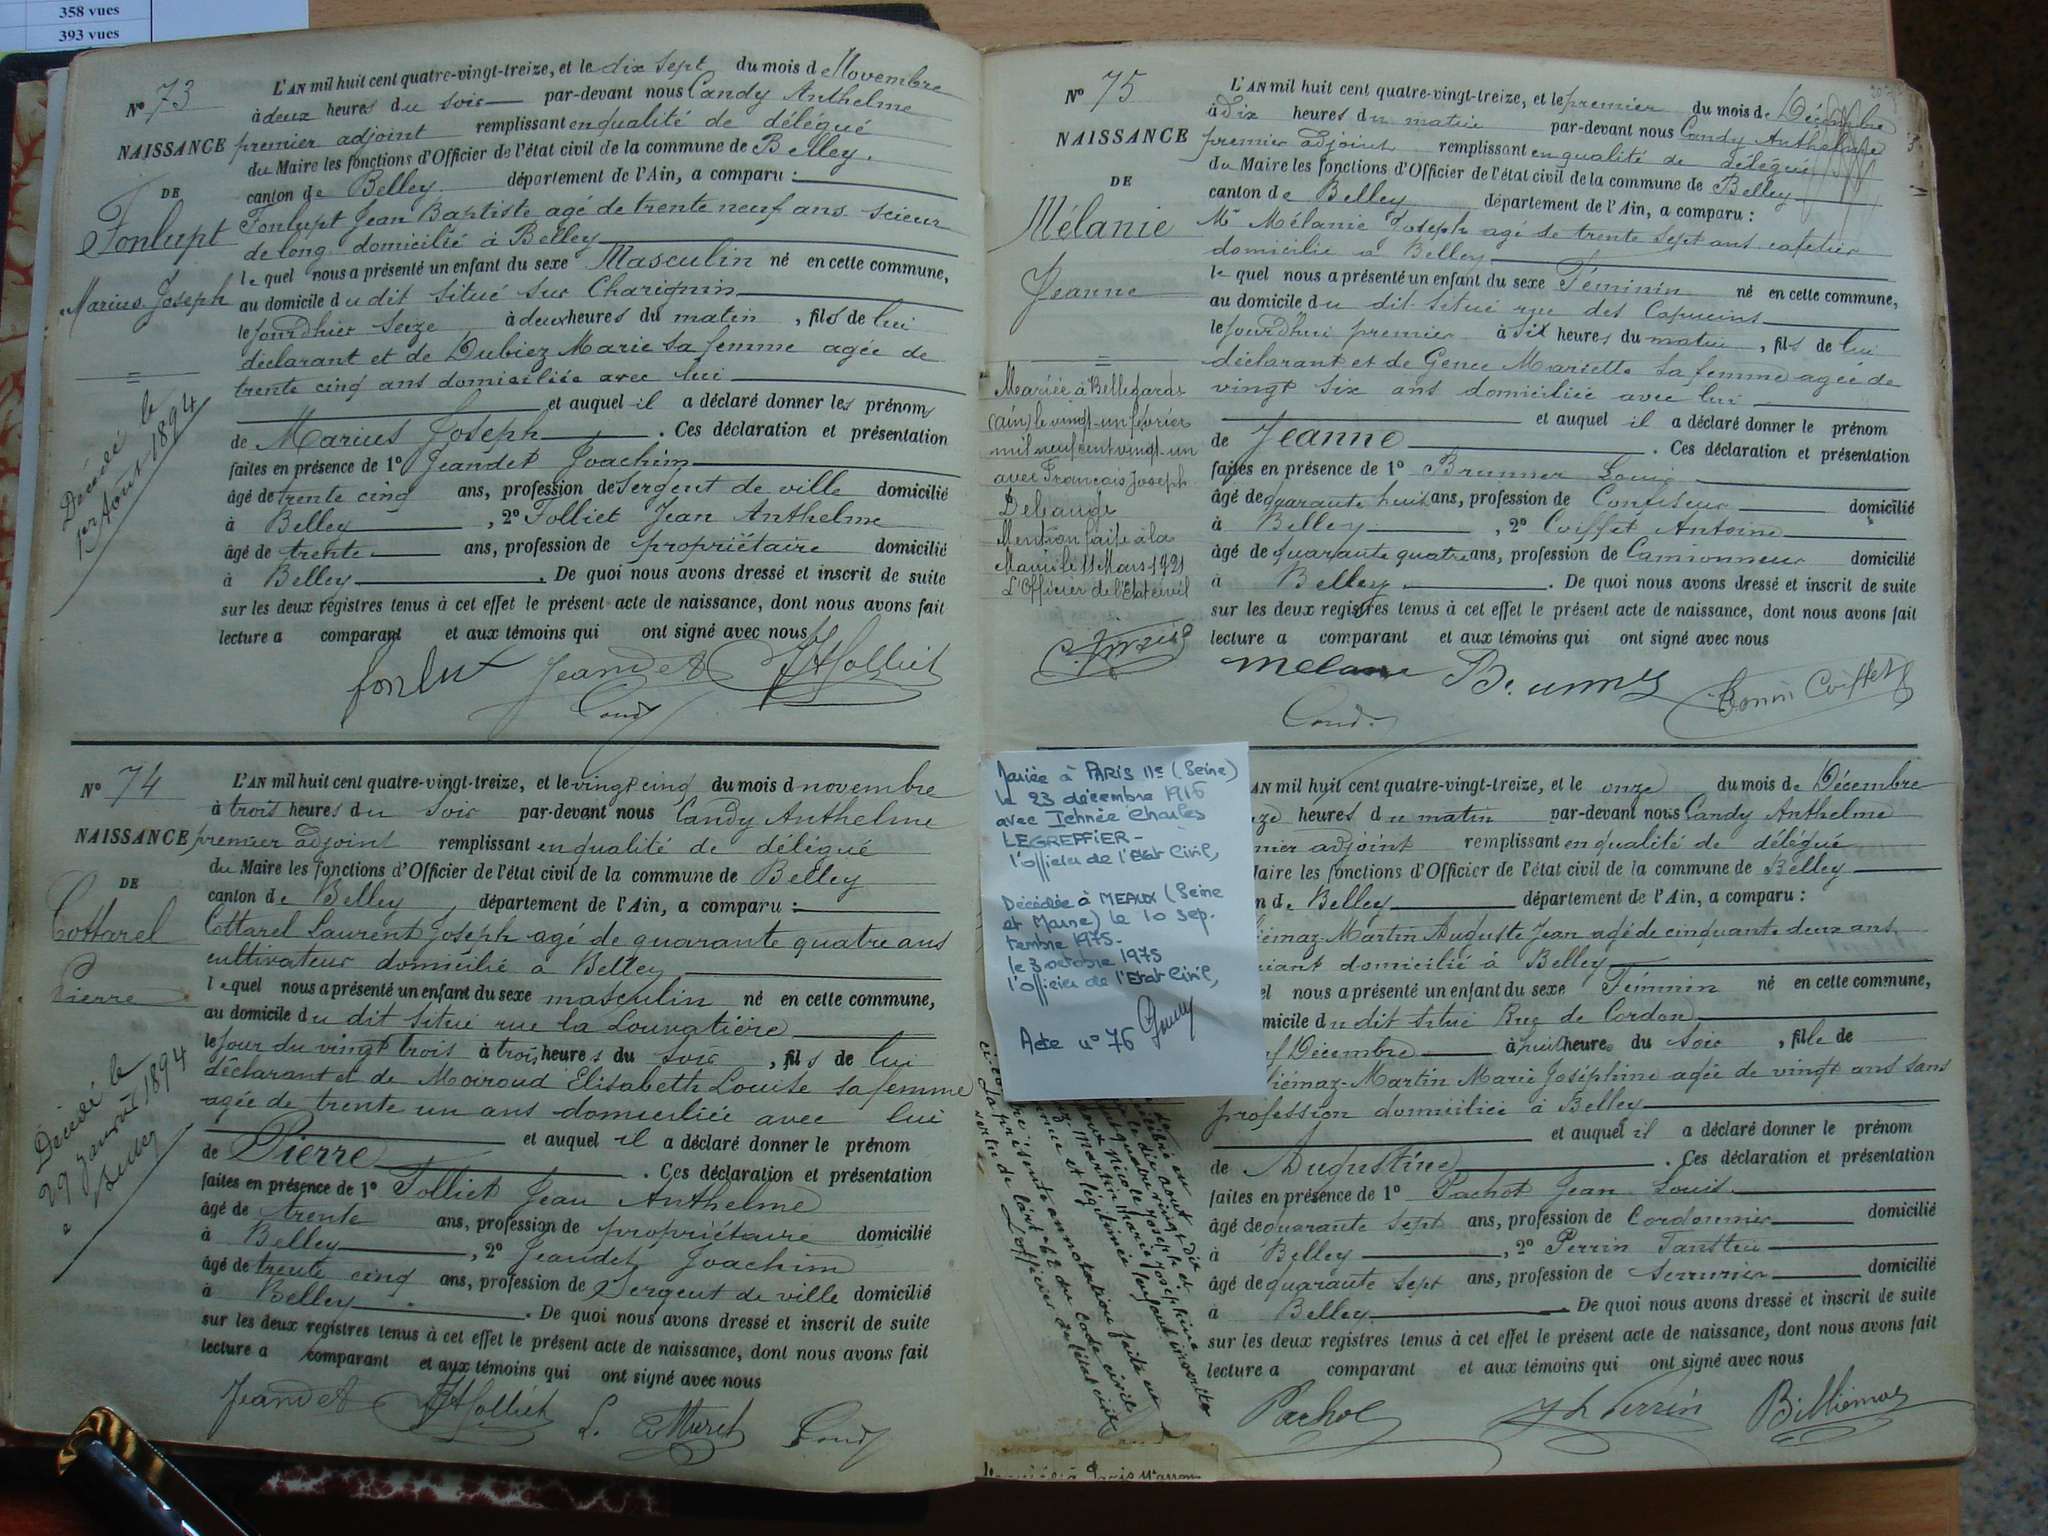 358 vues
393 vues
N° 73
NAISSANCE
DE
Fonlupt
Marius Joseph
Décédé le
1er Août 1894
L'AN mil huit cent quatre-vingt-treize, et le dix sept du mois de Novembre
à deux heures du soir par-devant nous Candy Anthelme
premier adjoint remplissant en qualité de délégué
du Maire les fonctions d'Officier de l'état civil de la commune de Belley.
canton de Belley département de l'Ain, a comparu :
Fonlupt Jean Baptiste agé de trente neuf ans scieur
de long domicilié à Belley
le quel nous a présenté un enfant du sexe Masculin né en cette commune,
au domicile du dit situé sur Charignin
le jourdhier seize à deux heures du matin, fils de lui
déclarant et de Dubiez Marie sa femme agée de
trente cinq ans domiciliée avec lui
et auquel il a déclaré donner les prénoms
de Marius Joseph. Ces déclaration et présentation
faites en présence de 1° Jeandet Joachim
âgé de trente cinq ans, profession de Sergent de ville domicilié
à Belley, 2° Folliet Jean Anthelme
âgé de trente ans, profession de propriétaire domicilié
à Belley. De quoi nous avons dressé et inscrit de suite
sur les deux registres tenus à cet effet le présent acte de naissance, dont nous avons fait
lecture a comparant et aux témoins qui ont signé avec nous
Jeandet JAFolliet
Candy
N° 74
NAISSANCE
DE
Cottarel
Pierre
Décédé le
29 Janvier 1894
à Belley
L'AN mil huit cent quatre-vingt-treize, et le vingt cinq du mois d novembre
à trois heures du soir par-devant nous Candy Anthelme
premier adjoint remplissant en qualité de délégué
du Maire les fonctions d'Officier de l'état civil de la commune de Belley
canton de Belley, département de l'Ain, a comparu :
Cottarel Laurent Joseph agé de quarante quatre ans
cultivateur domicilié à Belley
lequel nous a présenté un enfant du sexe masculin né en cette commune,
au domicile du dit situé rue la Louvatière
le jour du vingt trois à trois heures du soir, fils de lui
déclarant et de Moiroud Elisabeth Louise sa femme
agée de trente un ans domiciliée avec lui
et auquel il a déclaré donner le prénom
de Pierre. Ces déclaration et présentation
faites en présence de 1° Folliet Jean Anthelme
âgé de trente ans, profession de propriétaire domicilié
à Belley, 2° Jeandet Joachim
âgé de trente cinq ans, profession de Sergent de ville domicilié
à Belley. De quoi nous avons dressé et inscrit de suite
sur les deux registres tenus à cet effet le présent acte de naissance, dont nous avons fait
lecture a comparant et aux témoins qui ont signé avec nous
Jeandet JAFolliet Candy
N° 75
NAISSANCE
DE
Mélanie
Jeanne
Mariée à Bellegarde
(ain) le vingt-un février
mil neuf cent vingt-un
avec François Joseph
Mention faite à la
Mairie le 11 Mars 1921
L'Officier de l'Etat civil
L'AN mil huit cent quatre-vingt-treize, et le premier du mois de Décembre
à Dix heures du matin par-devant nous Candy Anthelme
premier adjoint remplissant en qualité de délégué
du Maire les fonctions d'Officier de l'état civil de la commune de Belley
canton de Belley département de l'Ain, a comparu :
Mr Mélanie Joseph agé de trente sept ans cafetier
domicilié à Belley
le quel nous a présenté un enfant du sexe Féminin né en cette commune,
au domicile du dit situé rue des Capucins
le jourd'hui premier à six heures du matin, fils de lui
déclarant et de Mariette sa femme agée de
vingt six ans domiciliée avec lui
et auquel il a déclaré donner le prénom
de Jeanne. Ces déclaration et présentation
faites en présence de 1° Brunner Louis
âgé de quarante huit ans, profession de Confiseur domicilié
à Belley, 2° Coiffet Antoine
âgé de quarante quatre ans, profession de Camionneur domicilié
à Belley. De quoi nous avons dressé et inscrit de suite
sur les deux registres tenus à cet effet le présent acte de naissance, dont nous avons fait
lecture a comparant et aux témoins qui ont signé avec nous
Melanie Brunner Coiffet
Candy
Mariée à PARIS 11e (Seine)
le 23 décembre 1916
avec Charles
LEGREFFIER -
l'officier de l'Etat Civil,
Décédée à MEAUX (Seine
et Marne) le 10 sep.
tembre 1975.
le 3 octobre 1975
l'officier de l'Etat Civil,
Acte n° 76
AN mil huit cent quatre-vingt-treize, et le onze du mois de Décembre
heures du matin par-devant nous Candy Anthelme
mier adjoint remplissant en qualité de délégué
Maire les fonctions d'Officier de l'état civil de la commune de Belley
n de Belley département de l'Ain, a comparu :
iémaz-Martin Auguste Jean agé de cinquante deux ans
domicilié à Belley
el nous a présenté un enfant du sexe Féminin né en cette commune,
micile du dit situé Rue de Cordon
f Décembre à huit heures du soir, fille de
iémaz-Martin Marie Joséphine agée de vingt ans sans
profession domiciliée à Belley
et auquel il a déclaré donner le prénom
de Augustine. Ces déclaration et présentation
faites en présence de 1° Pachot Jean Louis
âgé de quarante sept ans, profession de Cordonnier domicilié
à Belley, 2° Perrin
âgé de quarante sept ans, profession de Serrurier domicilié
à Belley. De quoi nous avons dressé et inscrit de suite
sur les deux registres tenus à cet effet le présent acte de naissance, dont nous avons fait
lecture a comparant et aux témoins qui ont signé avec nous
Pachot Perrin Billiémaz